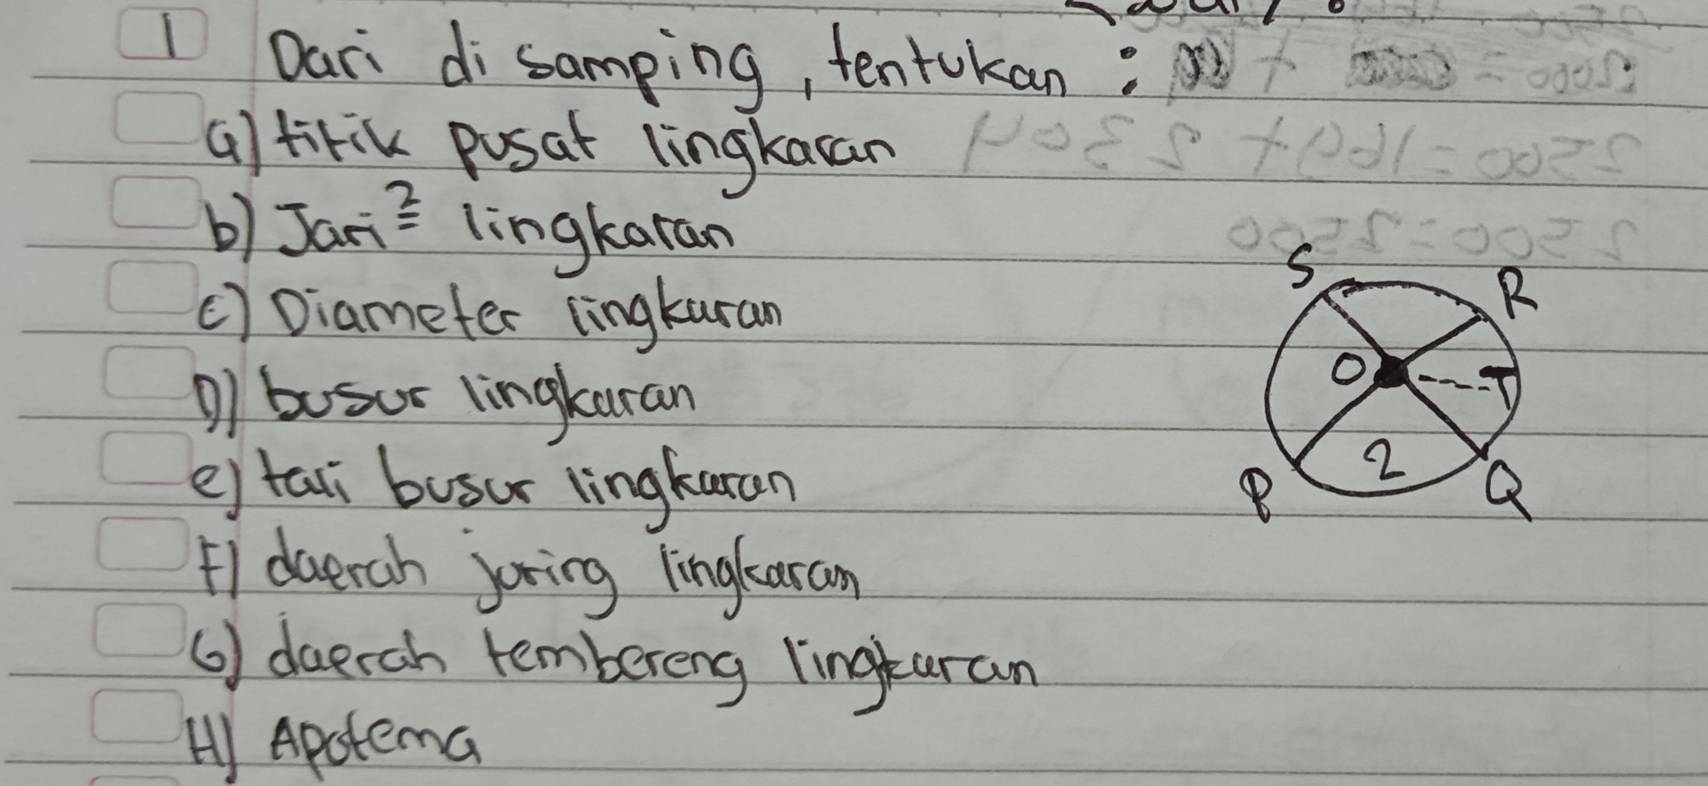 1 Dari di samping, tentukan :
a) titik pusat lingkaran
b) Jari² lingkaran
c) Diameter lingkaran
D) busur lingkaran
e) tali busur lingkaran
F) daerah juring lingkaran
G) daerah tembereng lingkaran
H) Apotema
S
R
O
T
P
2
Q